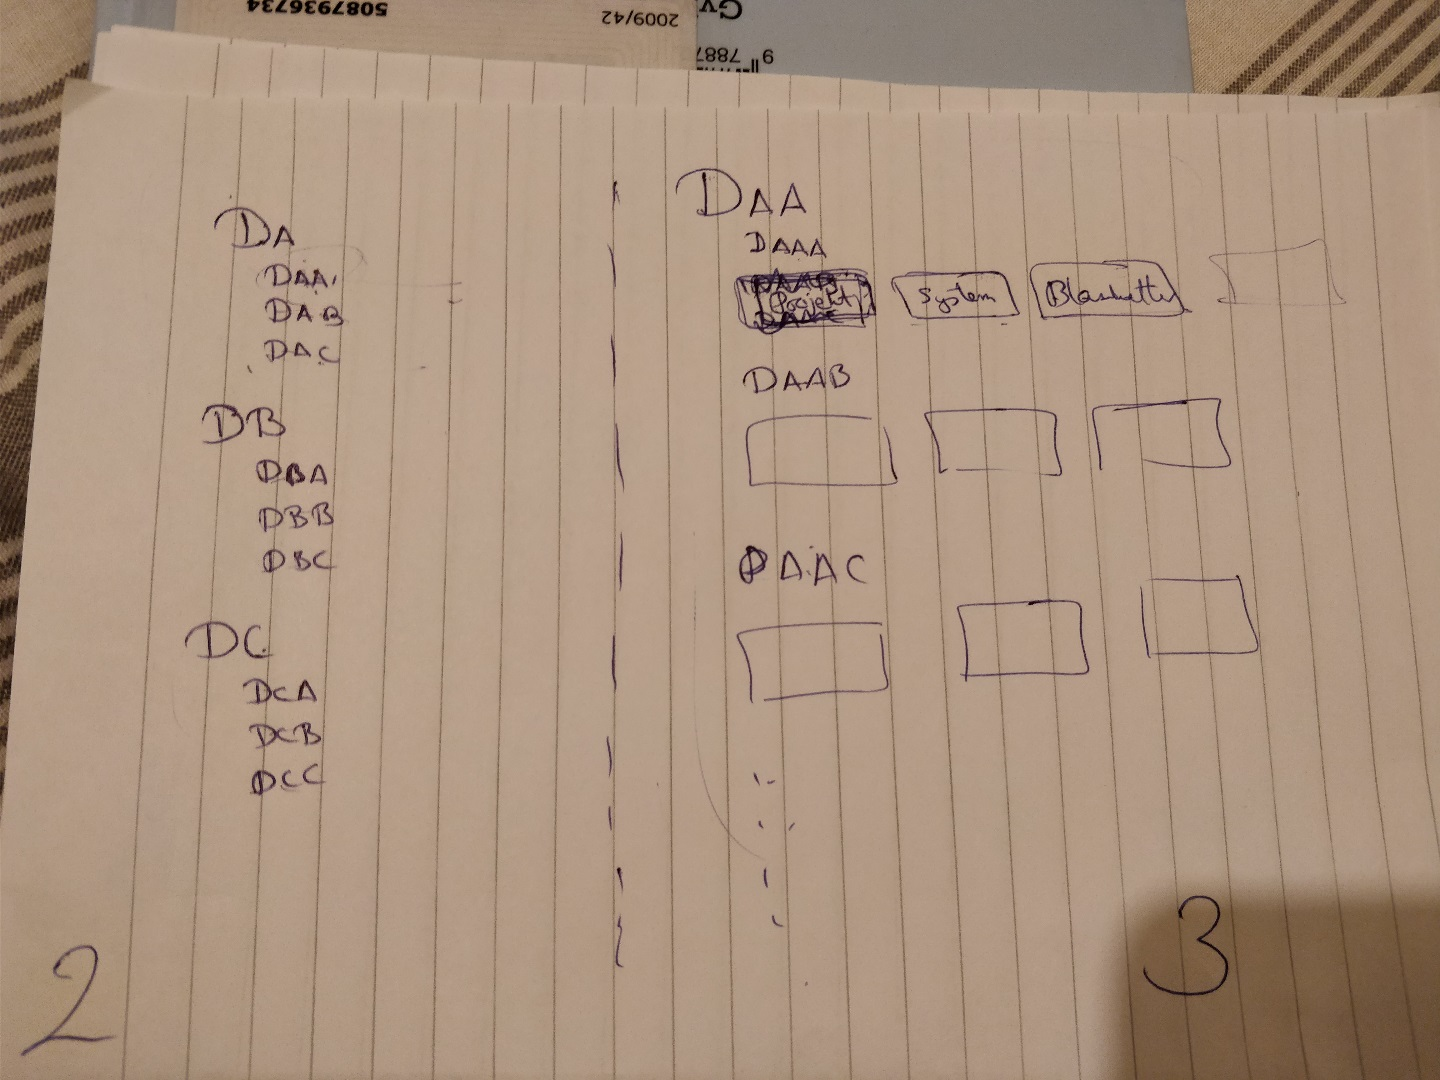 5087936734
2009/42
Gv
9 7887
DA
DAA
DAB
DAC
DB
DBA
DBB
DBC
DC
DCA
DCB
DCC
2
DAA
DAAA
Projekt System
DAAB
DAAC
3